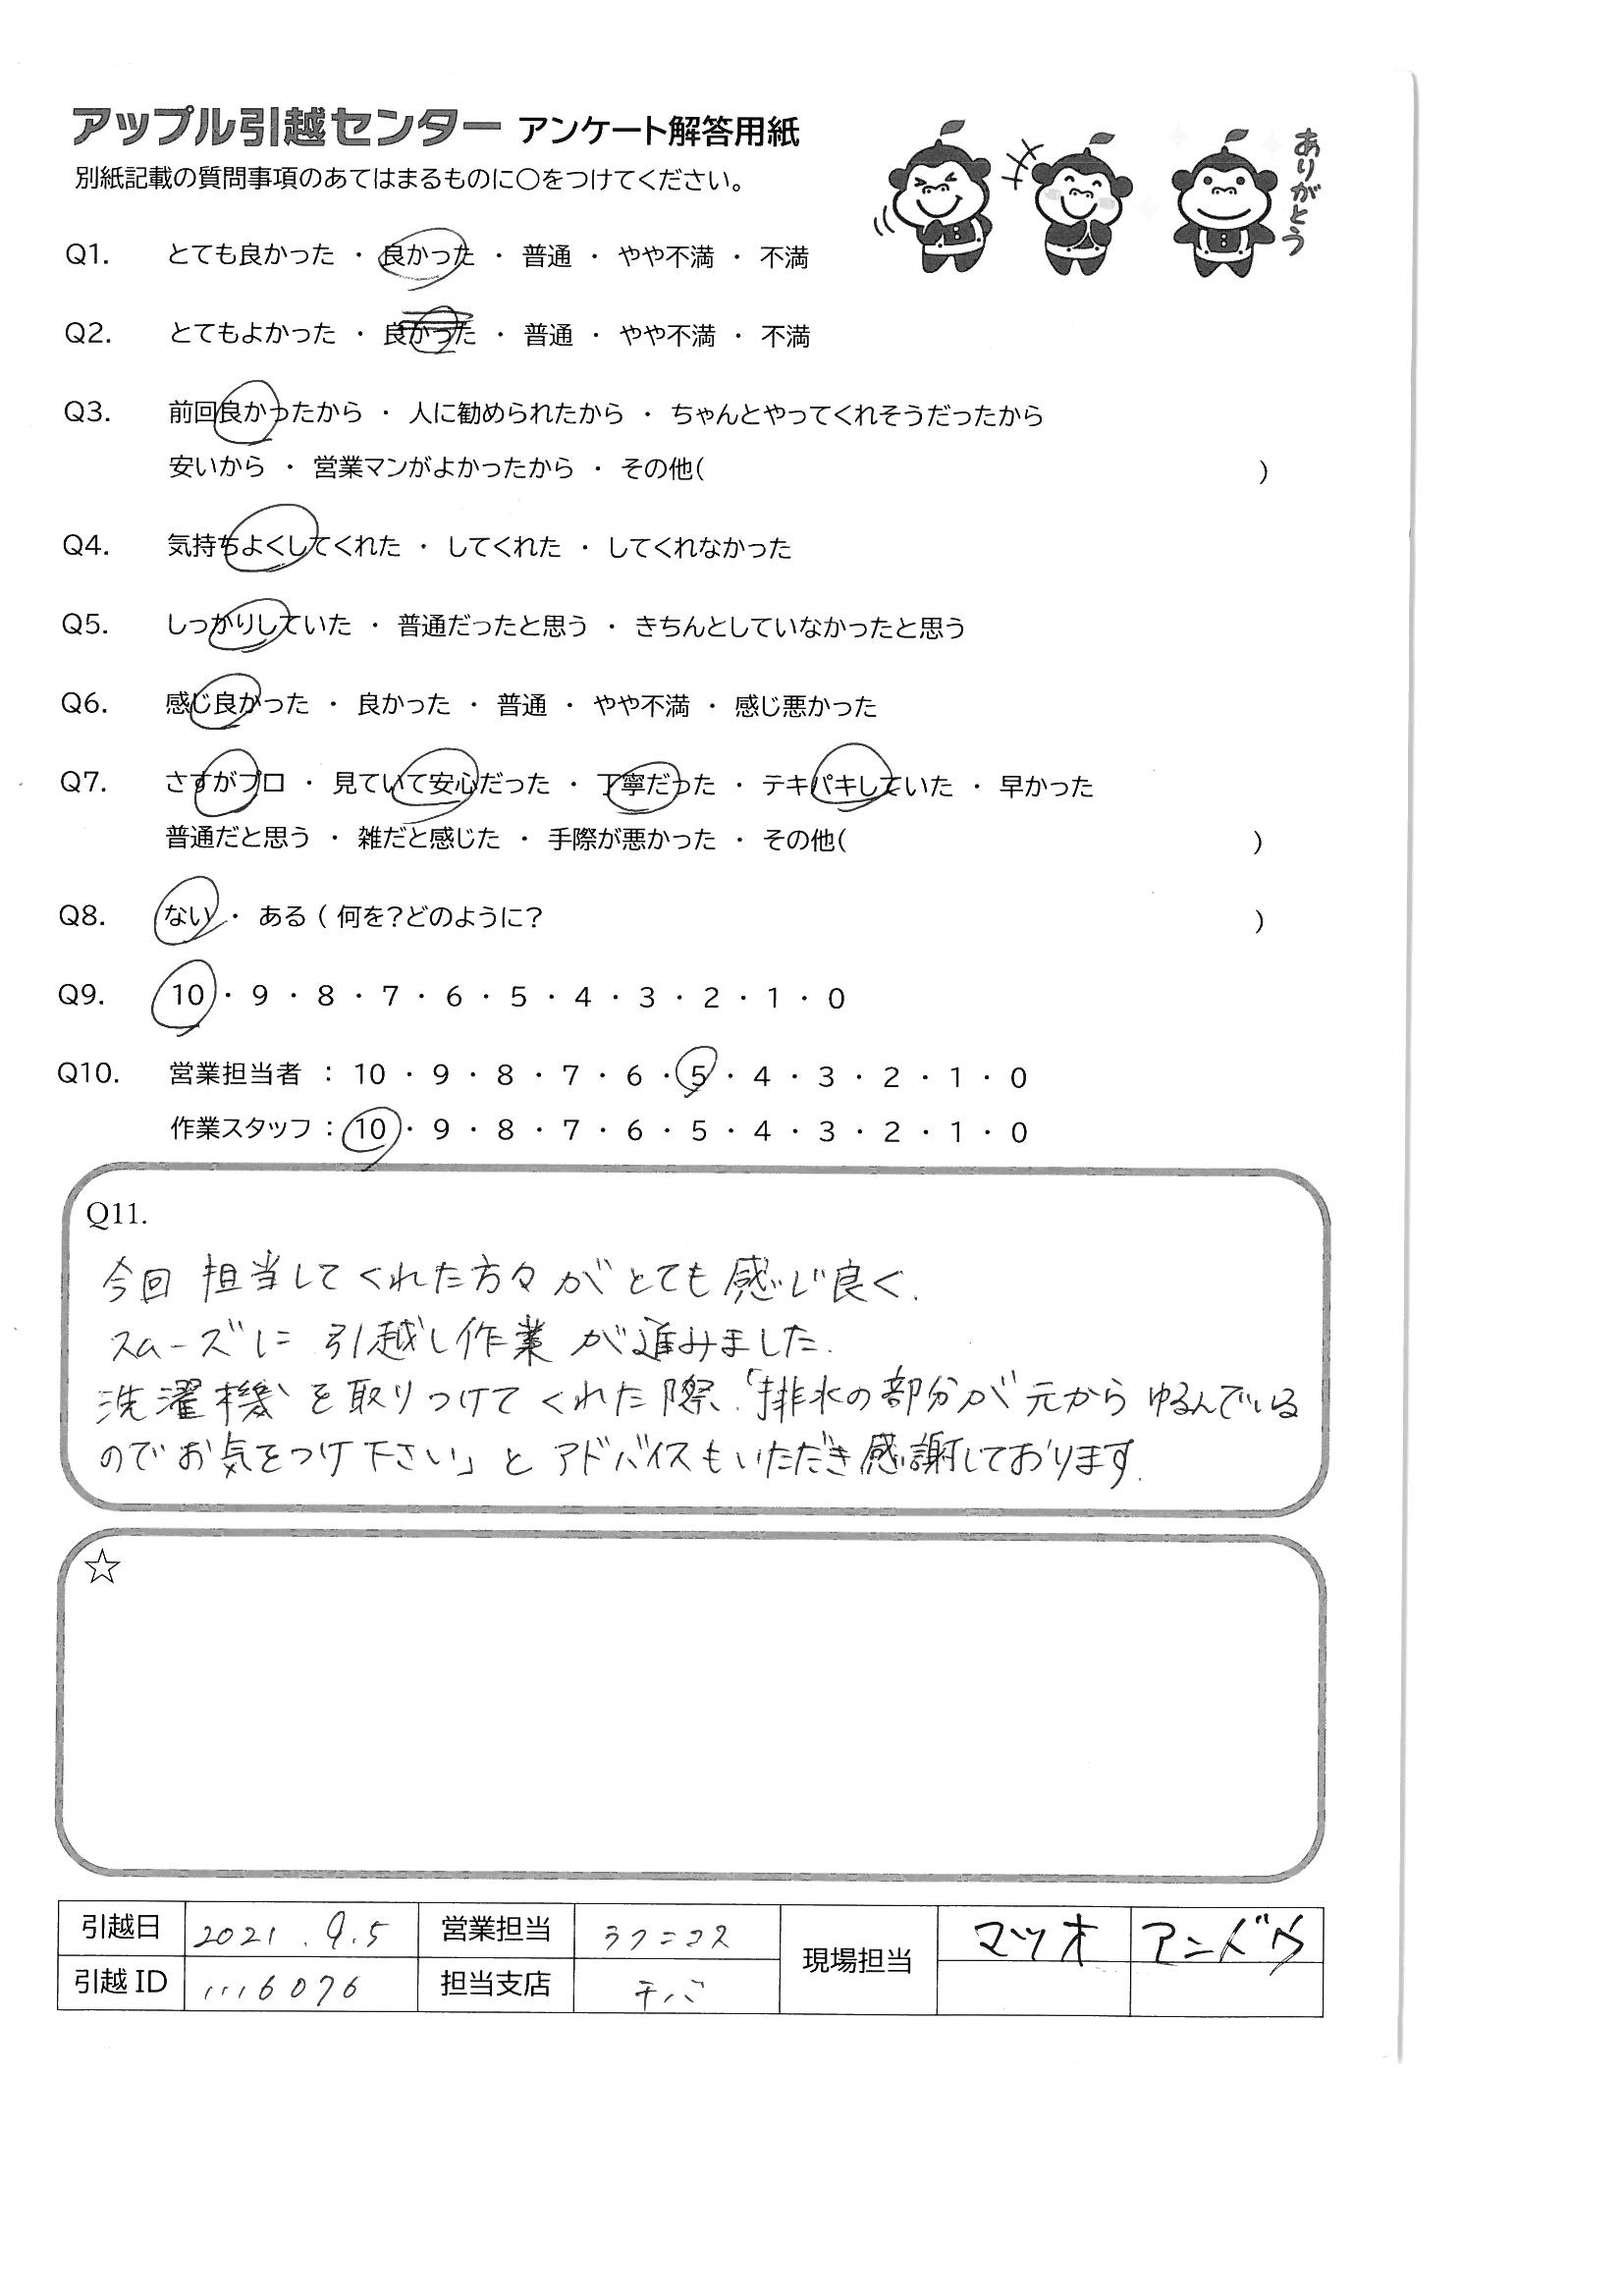 アップル引越センター アンケート解答用紙
別紙記載の質問事項のあてはまるものに○をつけてください。
ありがとう
Q1. とても良かった ・ 良かった ・ 普通 ・ やや不満 ・ 不満
Q2. とてもよかった ・ 良かった ・ 普通 ・ やや不満 ・ 不満
Q3. 前回良かったから ・ 人に勧められたから ・ ちゃんとやってくれそうだったから
安いから ・ 営業マンがよかったから ・ その他( )
Q4. 気持ちよくしてくれた ・ してくれた ・ してくれなかった
Q5. しっかりしていた ・ 普通だったと思う ・ きちんとしていなかったと思う
Q6. 感じ良かった ・ 良かった ・ 普通 ・ やや不満 ・ 感じ悪かった
Q7. さすがプロ ・ 見ていて安心だった ・ 丁寧だった ・ テキパキしていた ・ 早かった
普通だと思う ・ 雑だと感じた ・ 手際が悪かった ・ その他( )
Q8. ない ・ ある ( 何を?どのように? )
Q9. 10 ・ 9 ・ 8 ・ 7 ・ 6 ・ 5 ・ 4 ・ 3 ・ 2 ・ 1 ・ 0
Q10. 営業担当者 : 10 ・ 9 ・ 8 ・ 7 ・ 6 ・ 5 ・ 4 ・ 3 ・ 2 ・ 1 ・ 0
作業スタッフ : 10 ・ 9 ・ 8 ・ 7 ・ 6 ・ 5 ・ 4 ・ 3 ・ 2 ・ 1 ・ 0
Q11.
今回 担当してくれた方々がとても感じ良く、
スムーズに 引越し作業が進みました.
洗濯機を取りつけてくれた際、「排水の部分が元からゆるんでいる
のでお気をつけ下さい」とアドバイスもいただき感謝しております.
☆
引越日 2021.9.5 営業担当 現場担当 マツオ アンドウ
引越ID 1116076 担当支店 チバ